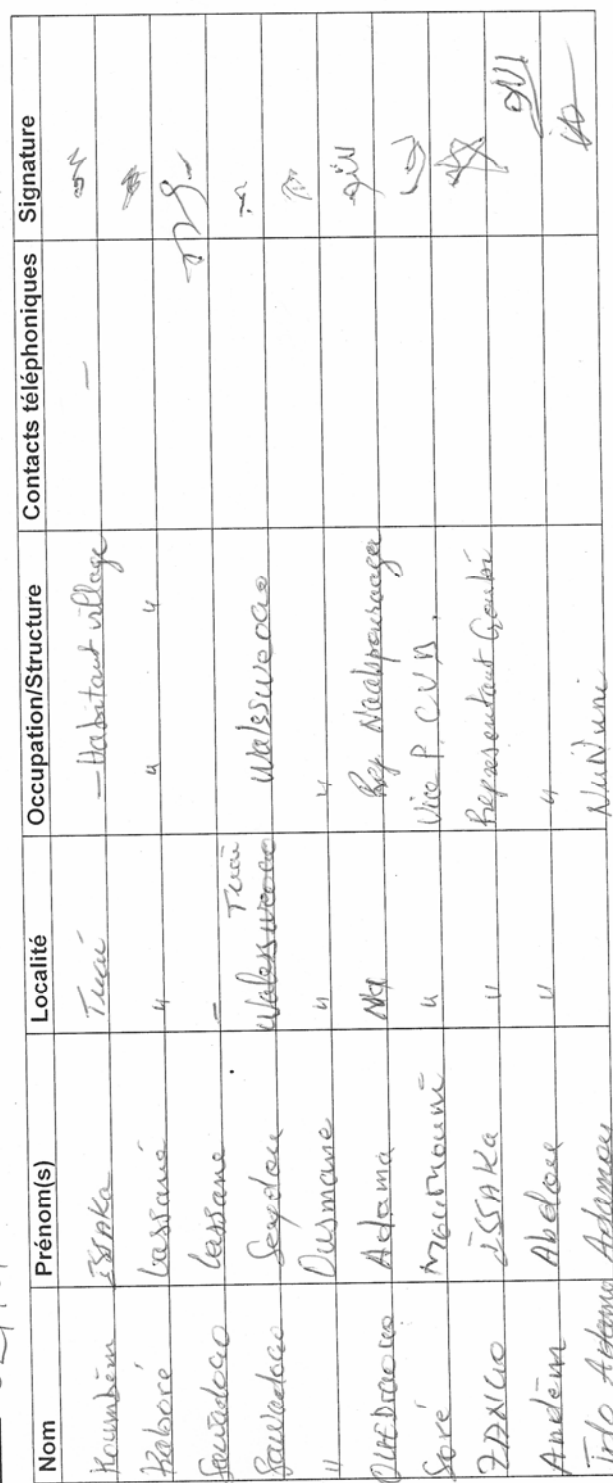 Nom Prénom(s) Localité Occupation/Structure Contacts téléphoniques Signature
Koumbèm ISSAKA Tiaré - Habitant village -
Kaboré Lassané " " "
Sawadogo Lassane -
Sawadogo Seydou Walessweogo Walssweogo
" Ousmane " "
OUEDRAOGO Adama Rep Naabpouraaga
Soré Moumouni " Vice P. CVD.
ZANGO ISSAKA " Representant Goubi
Andèm Abdou " "
Ido Adama Adamou NuNuni